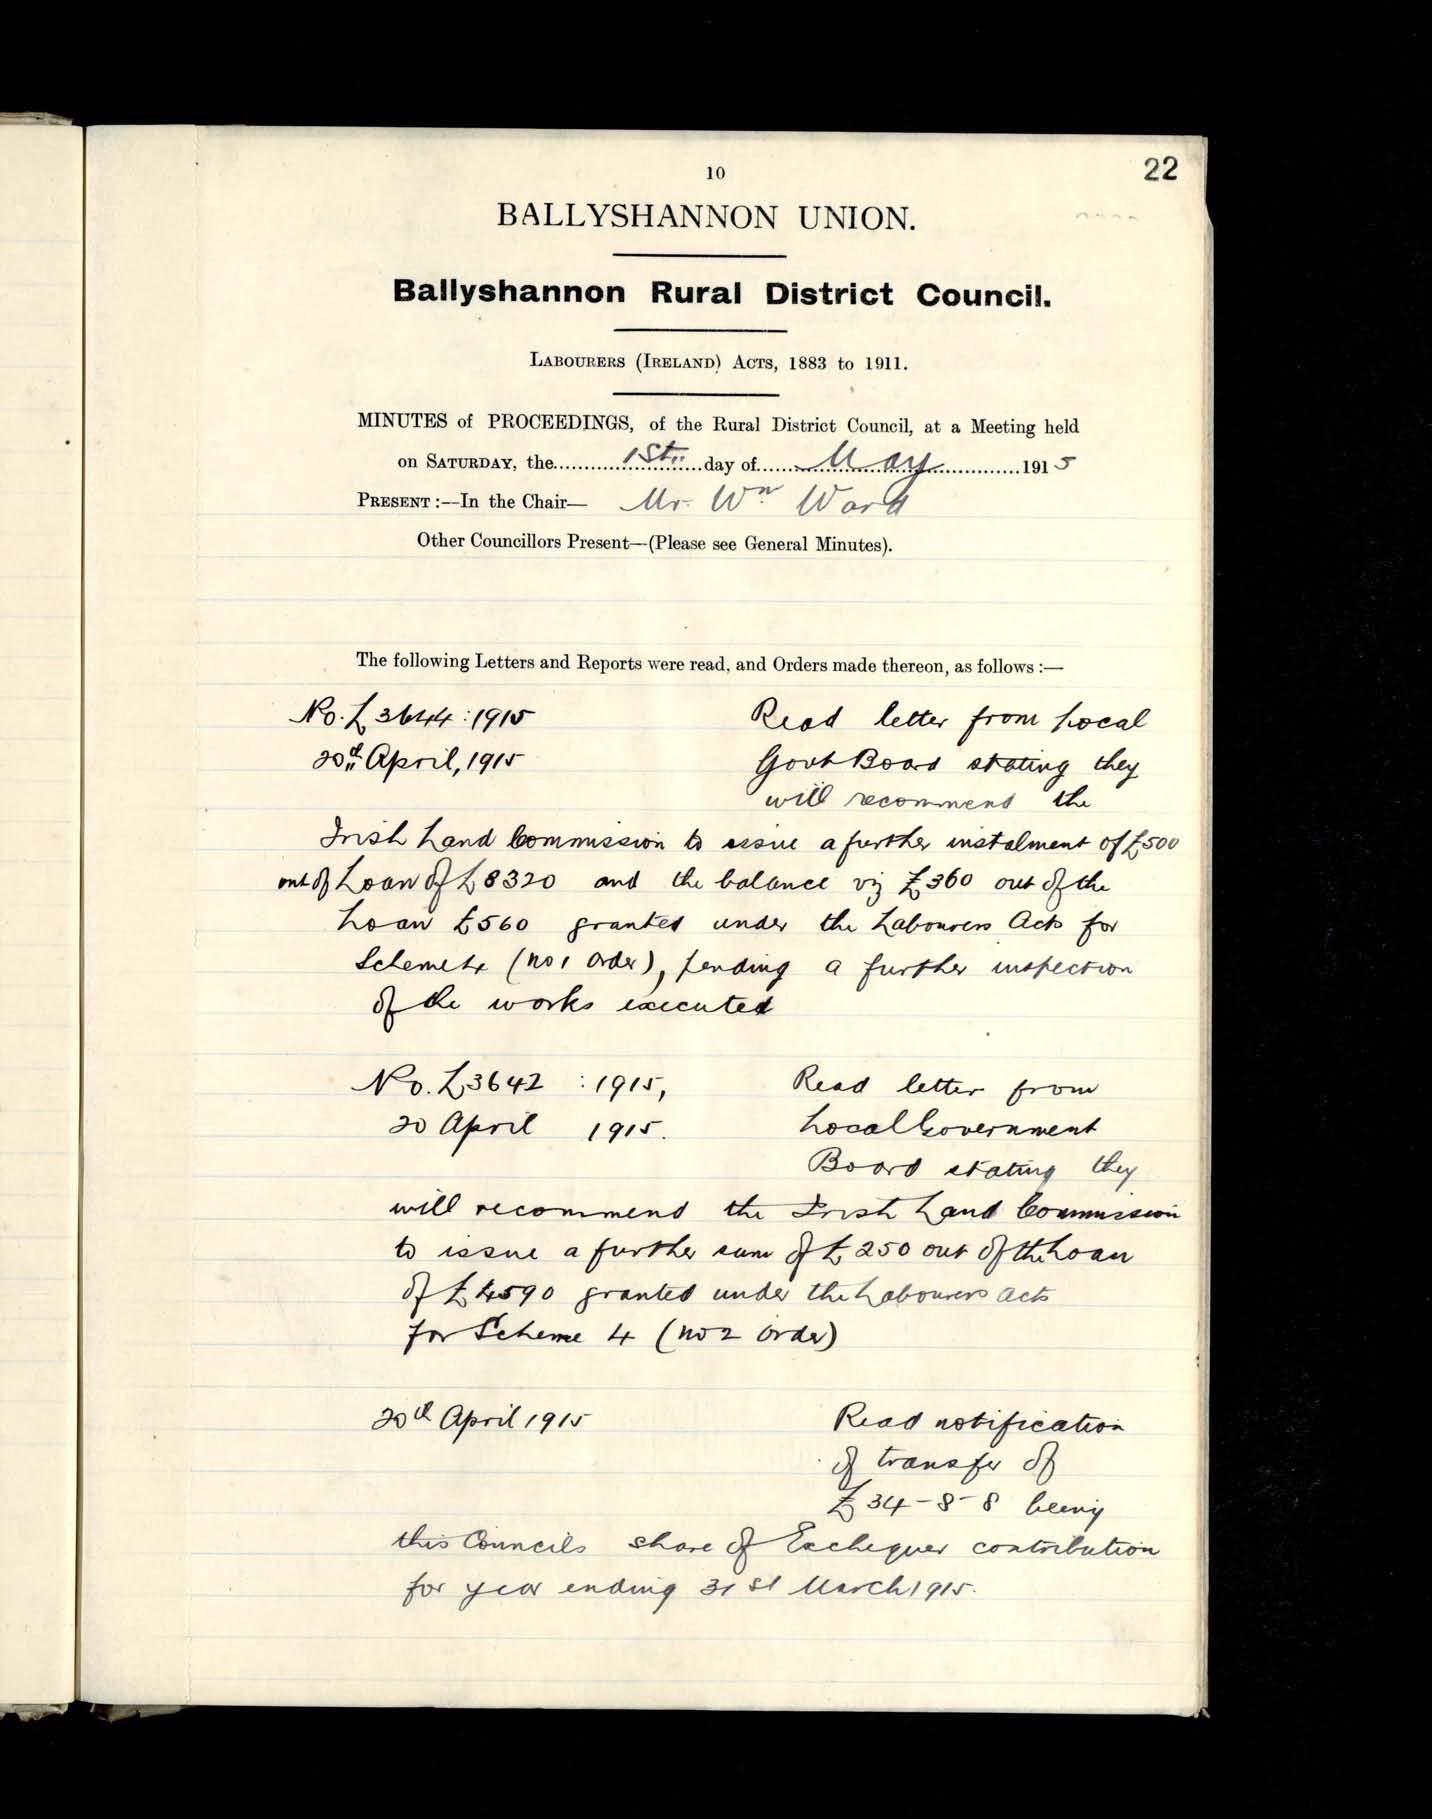 22
10
BALLYSHANNON UNION.
Ballyshannon Rural District Council.
LABOURERS (IRELAND) ACTS, 1883 to 1911.
MINUTES of PROCEEDINGS, of the Rural District Council, at a Meeting held
on SATURDAY, the 1st day of May 1915
PRESENT:—In the Chair— Mr. Wm Ward
Other Councillors Present—(Please see General Minutes).
The following Letters and Reports were read, and Orders made thereon, as follows:—
No. L 3644 : 1915 Read letter from Local
20th April, 1915 Govt Board stating they
will recommend the
Irish Land Commission to issue a further instalment of £500
out of Loan of £8320 and the balance viz £360 out of the
Loan £560 granted under the Labourers Acts for
Scheme 4 (No 1 Order), pending a further inspection
of the works executed
No. L 3642 : 1915, Read letter from
20 April 1915. Local Government
Board stating they
will recommend the Irish Land Commission
to issue a further sum of £250 out of the Loan
of £4590 granted under the Labourers Acts
for Scheme 4 (No 2 Order)
20th April 1915 Read notification
of transfer of
£34-8-8 being
this Councils share of Exchequer contribution
for year ending 31st March 1915.